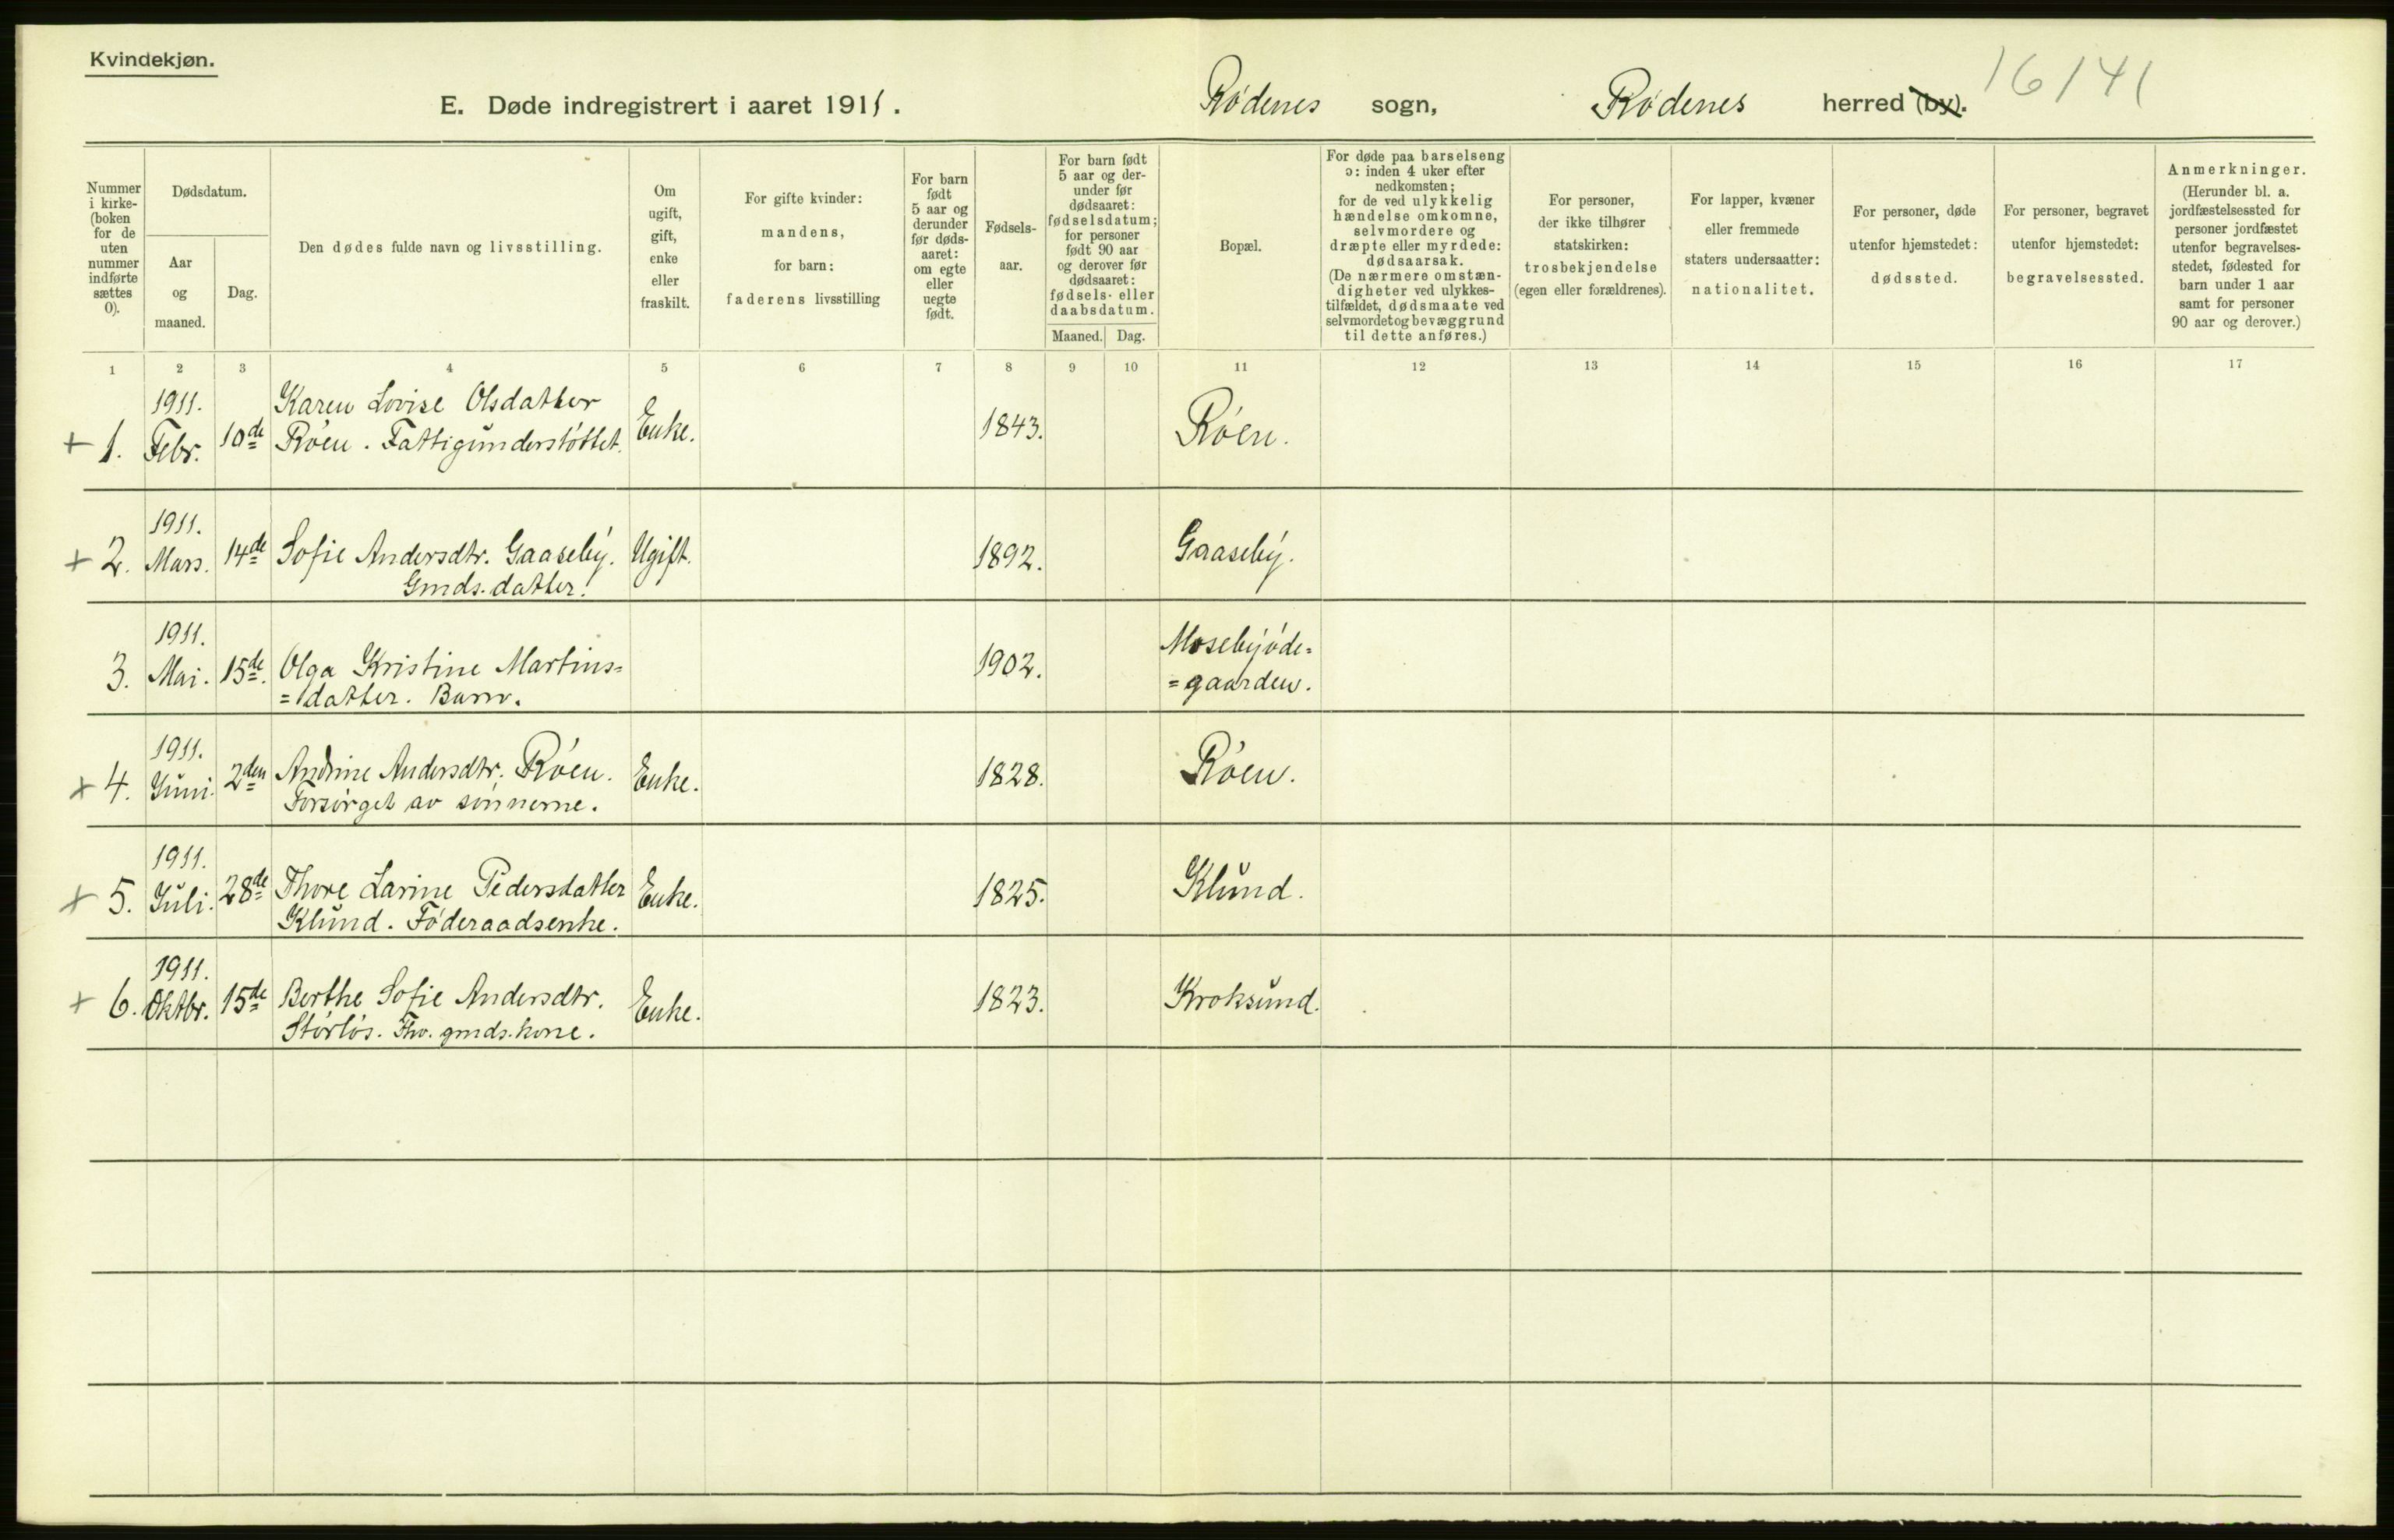 Kvindekjøn.
E. Døde indregistrert i aaret 1911.
Rødenes sogn, Rødenes herred (by).
16141
Nummer i kirke-(boken for de uten nummer indførte sættes 0).
Dødsdatum.
Aar og maaned.
Dag.
Den dødes fulde navn og livsstilling.
Om ugift, gift, enke eller fraskilt.
For gifte kvinder: mandens, for barn: faderens livsstilling
For barn født 5 aar og derunder før døds-aaret: om egte eller uegte født.
Fødsels-aar.
For barn født 5 aar og der-under før dødsaaret: fødselsdatum; for personer født 90 aar og derover før dødsaaret: fødsels- eller daabsdatum.
Maaned. Dag.
Bopæl.
For døde paa barselseng ɔ: inden 4 uker efter nedkomsten; for de ved ulykkelig hændelse omkomne, selvmordere og dræpte eller myrdede: dødsaarsak. (De nærmere omstæn-digheter ved ulykkes-tilfældet, dødsmaate ved selvmordet og bevæggrund til dette anføres.)
For personer, der ikke tilhører statskirken: trosbekjendelse (egen eller forældrenes).
For lapper, kvæner eller fremmede staters undersaatter: nationalitet.
For personer, døde utenfor hjemstedet: dødssted.
For personer, begravet utenfor hjemstedet: begravelsessted.
Anmerkninger. (Herunder bl. a. jordfæstelsessted for personer jordfæstet utenfor begravelses-stedet, fødested for barn under 1 aar samt for personer 90 aar og derover.)
1 2 3 4 5 6 7 8 9 10 11 12 13 14 15 16 17
1911. Karen Lovise Olsdatter
+ 1. Febr. 10de Røen. Fattigunderstøttet. Enke. 1843. Røen.
1911.
+ 2. Mars. 14de Sofie Andersdtr. Gaaseby. Ugift. 1892. Gaaseby.
Gmds. datter.
1911. Mosebyøde=
3. Mai. 15de. Olga Kristine Martins= 1902. =gaarden.
=datter. Barn.
1911.
+ 4. Juni. 2den Andrine Andersdtr. Røen. Enke. 1828. Røen.
Forsørget av sønnerne.
1911.
+ 5. Juli. 28de Thore Larine Pedersdatter Enke. 1825. Klund.
Klund. Føderaadsenke.
1911.
+ 6. Oktbr. 15de Berthe Sofie Andersdtr. Enke. 1823. Kroksund.
Størløs. Fhv. gmds. kone.